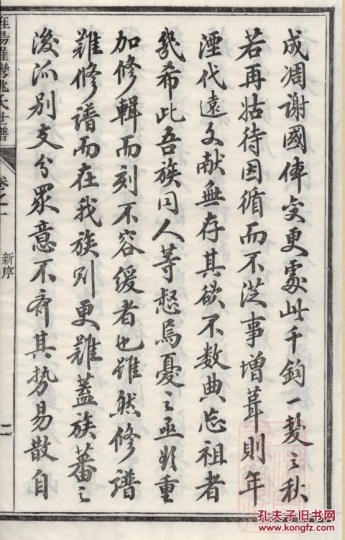 成凋谢國俾寔更處此千鈞一髮之秋
若再姑待因循而不從事增葺則年
湮代遠文献無存其欲不数典忘祖者
幾希此吾族同人等惄焉憂之亟欲重
加修輯而刻不容缓者也雖然修譜
難修譜而在我族則更難蓋族蕃之
後派别支分眾意不齐其勢易散自
姚氏世譜
卷之一
新序
二
孔夫子旧书网
KONGFZ.COM